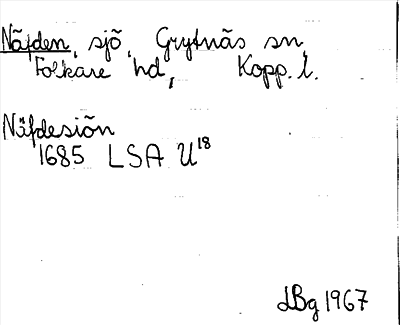 Näfden, sjö, Grytnäs sn,
Folkare hd, Kopp. l.
Näfdesiön
1685 LSA U18
LBg 1967